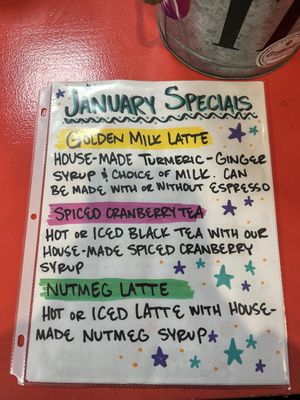 JANUARY SPECIALS
GOLDEN MILK LATTE
HOUSE-MADE TURMERIC-GINGER
SYRUP & CHOICE OF MILK. CAN
BE MADE WITH OR WITHOUT ESPRESSO
SPICED CRANBERRY TEA
HOT OR ICED BLACK TEA WITH OUR
HOUSE-MADE SPICED CRANBERRY
SYRUP
NUTMEG LATTE
HOT OR ICED LATTE WITH HOUSE-
MADE NUTMEG SYRUP